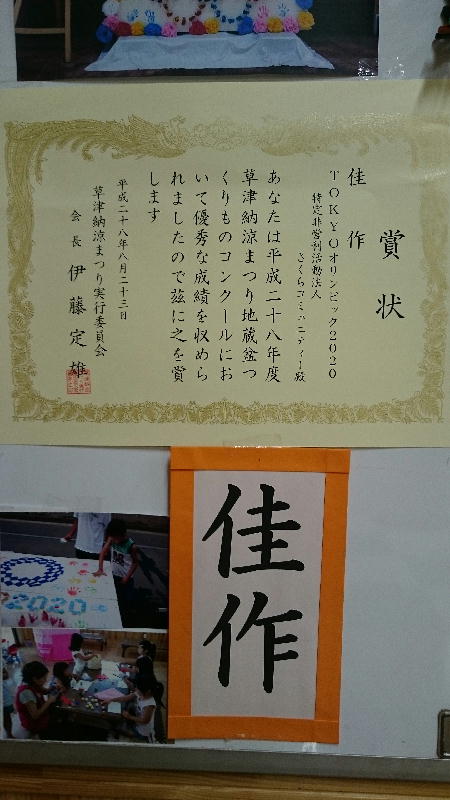 賞状
佳作
TOKYOオリンピック2020
特定非営利活動法人
さくらコミュニティー殿
あなたは平成二十八年度
草津納涼まつり地蔵盆つ
くりものコンクールにお
いて優秀な成績を収めら
れましたので茲に之を賞
します
平成二十八年八月二十三日
草津納涼まつり実行委員会
会長 伊藤定雄
佳作
2020